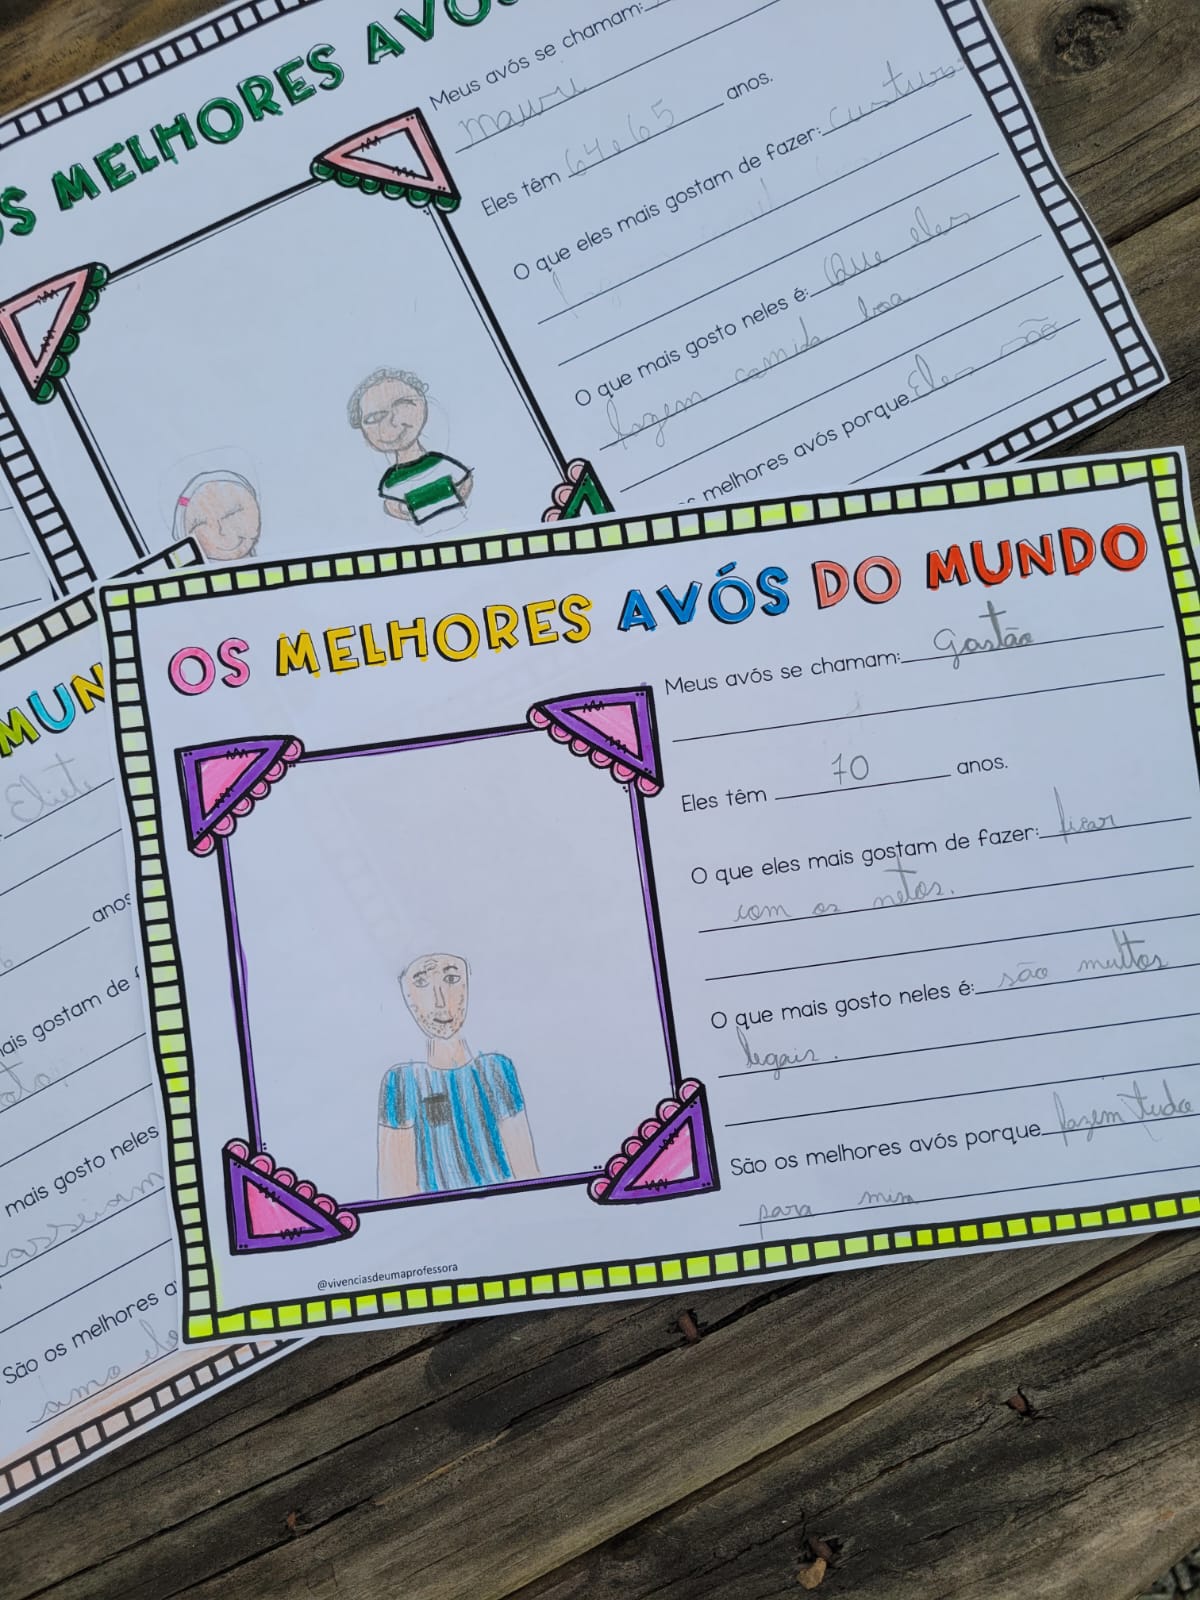 OS MELHORES AVÓS
Meus avós se chamam:
Mauri
Eles têm 64 e 65 anos.
O que eles mais gostam de fazer: custura
O que mais gosto neles é: Que eles
fazem comida boa
melhores avós porque Eles são
MUN
Eliete
anos
ais gostam de f
mais gosto neles
asseiam
São os melhores a
amo ele
OS MELHORES AVÓS DO MUNDO
Meus avós se chamam: Gastão
Eles têm 70 anos.
O que eles mais gostam de fazer: ficar
com os netos.
O que mais gosto neles é: são muitos
legais.
São os melhores avós porque fazem tudo
para mim
@vivenciasdeumaprofessora